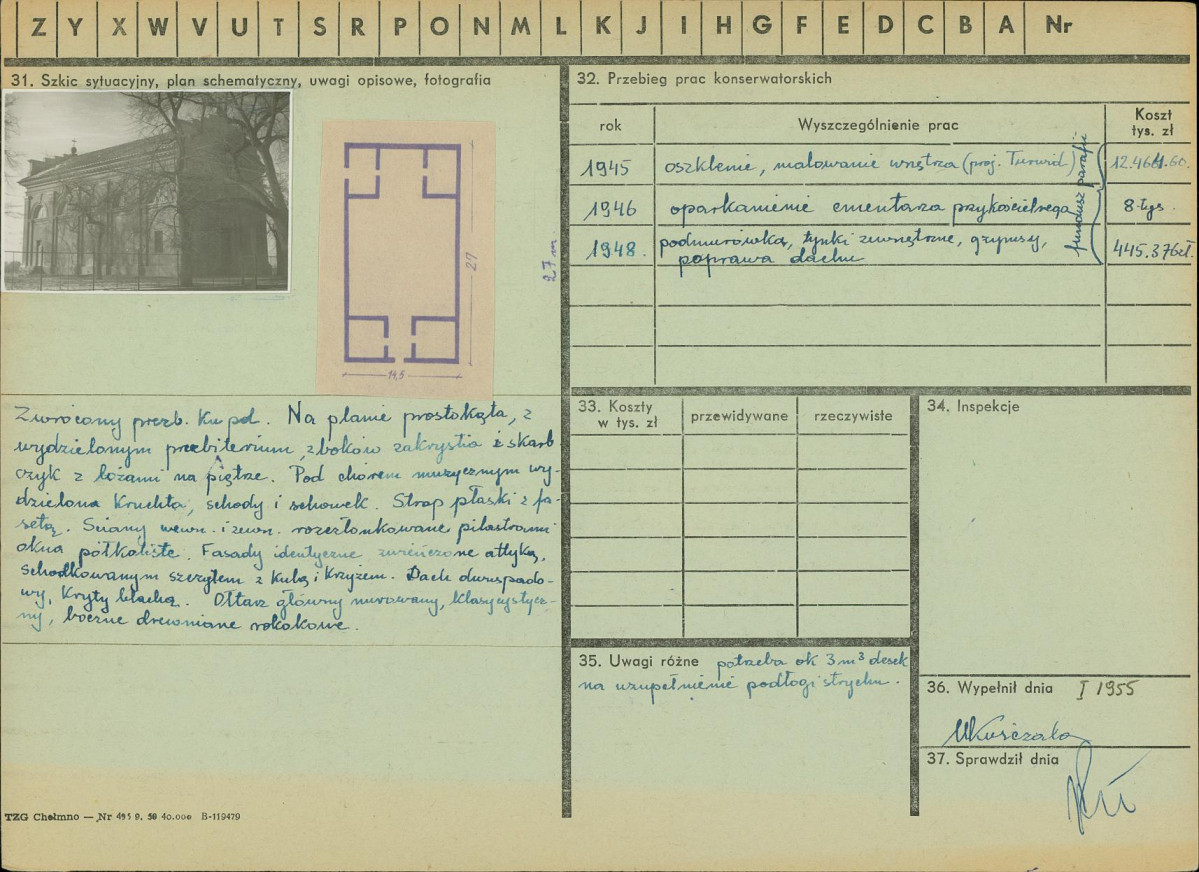 Z Y X W V U T S R P O N M L K J I H G F E D C B A Nr
31. Szkic sytuacyjny, plan schematyczny, uwagi opisowe, fotografia
27
14,5
27 m.
Zwrócony prezb. ku pd. Na planie prostokąta, z
wydzielonym prezbiterium, z boków zakrystia i skarb
czyk z lożami na piętrze. Pod chórem muzycznym wy-
dzielona kruchta, schody i schowek. Strop płaski z fa-
setą. Ściany wewn. i zewn. rozczłonkowane pilastrami
okna półkoliste. Fasady identyczne zwieńczone attyką,
schodkowanym szczytem z kulą i krzyżem. Dach dwuspado-
wy, kryty blachą. Ołtarz główny murowany, klasycystycz-
ny, boczne drewniane rokokowe.
TZG Chełmno — Nr 495 9. 50 40.000 B-119479
32. Przebieg prac konserwatorskich
rok Wyszczególnienie prac Koszt
tys. zł
1945 oszklenie, malowanie wnętrza (proj. Turwid) 12.464.60.
1946 oparkanienie cmentarza przykościelnego 8 tys.
1948. podmurówka, tynki zewnętrzne, gzymsy, 445.376 zł.
poprawa dachu
fundusz parafii
33. Koszty
w tys. zł
przewidywane rzeczywiste
34. Inspekcje
35. Uwagi różne potrzeba ok 3 m³ desek
na uzupełnienie podłogi strychu.
36. Wypełnił dnia I 1955
37. Sprawdził dnia